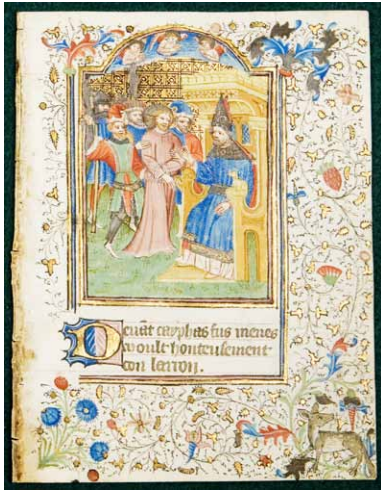 Deuāt cayphas fus menes
moult honteusement
con larron.